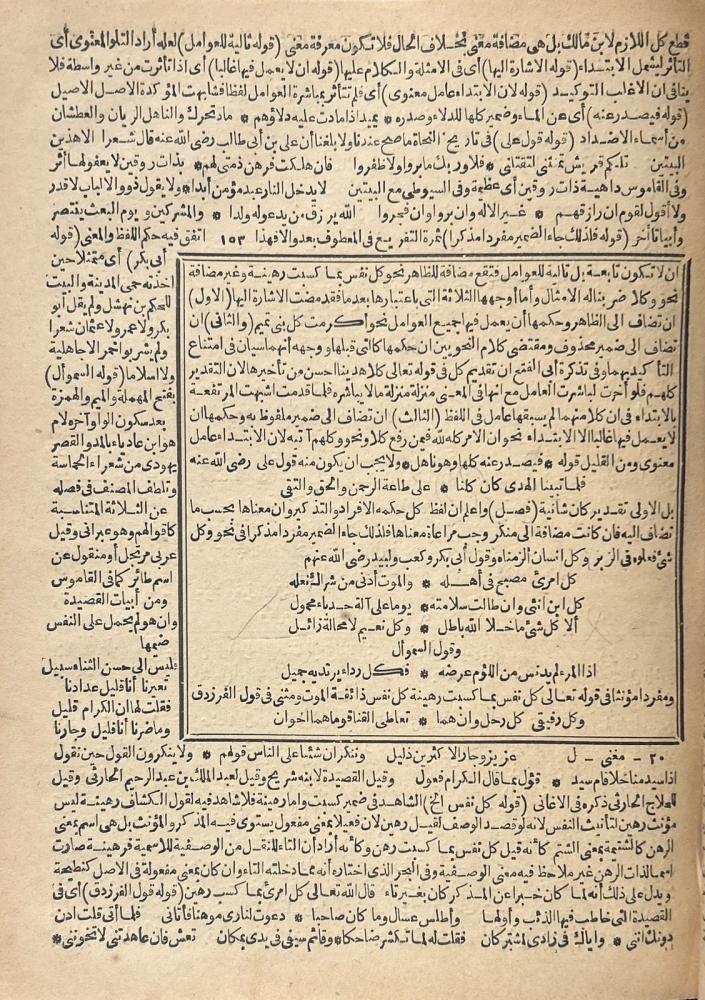 قطع كل اللازم لابن مالك بل هى مضافة معنى بخلاف الحال فلا تكون معرفة معنى (قوله تالية للعوامل) لعله أراد التلو المعنوى أى
التأثر ليشمل الابتداء (قوله الاشارة اليها) أى فى الامثلة والكلام عليها (قوله ان لا يعمل فيها غالبا) أى اذا تأثرت من غير واسطة فلا
ينافى ان الاغلب التوكيد (قوله لان الابتداء عامل معنوى) أى فلم تتأثر بمباشرة العوامل لفظا فشابهت المؤكدة الاصل الاصيل
(قوله فيصدر عنه) أى عن الماء وضمير كلها للدلاء وصدره * يميد اذا مادت عليه دلاؤهم * ماد تحرك والناهل الريان والعطشان
من أسماء الاضداد (قوله قول على) فى تاريخ النحاة ما صح عندنا ولا بلغنا أن على بن أبى طالب رضى الله عنه قال شعرا الا هذين
البيتين تلكم قريش تمنانى لتقتلنى * فلا وربك ما بروا ولا ظفروا فان هلكت فرهن ذمتى لهم * بذات روقين لا يعفو لها أثر
وفى القاموس داهية ذات روقين أى عظيمة وفى السيوطى مع البيتين لا يدخل النار عبد مؤمن أبدا * ولا يقول ذوو الالباب لا قدر
ولا أقول لقوم ان رازقهم * غير الاله وان بروا وان فجروا الله يرزق من يدعو له ولدا * والمشركين ويوم البعث ينتصر
وأبيات أخر (قوله فلذلك جاء الضمير مفردا مذكرا) ثمرة التفريع فى المعطوف بعد والا فهذا ١٥٣ اتفق فيه حكم اللفظ والمعنى (قوله
أبى بكر) أى متمثلا حين
أخذته حمى المدينة والبيت
للحكم بن نهشل ولم يقل أبو
بكر ولا عمر ولا عثمان شعرا
ولم يشربوا خمرا لا جاهلية
ولا اسلاما (قوله السموأل)
بفتح المهملة والميم والهمزة
بعد سكون الواو آخره لام
هو ابن عادياء بالمد والقصر
يهودى من شعراء الحماسة
وتلطف المصنف فى فصله
عن الثلاثة المتناسبة
كا قوالهم وهو عبرانى وقيل
عربى مرتجل أو منقول عن
اسم طائر كما فى القاموس
ومن أبيات القصيدة
وان هو لم يحمل على النفس
ضيمها
فليس الى حسن الثناء سبيل
تعيرنا أنا قليل عدادنا
فقلت لها ان الكرام قليل
وما ضرنا أنا قليل وجارنا
ان لا تكون تابعة بل تالية للعوامل فتقع مضافة للظاهر نحو كل نفس بما كسبت رهينة وغير مضافة
نحو وكلا ضربنا له الامثال وأما أوجهها الثلاثة التى باعتبار ما بعدها فقد مضت الاشارة اليها (الاول)
ان تضاف الى الظاهر وحكمها أن يعمل فيها جميع العوامل نحو أكرمت كل بنى تميم (والثانى) ان
تضاف الى ضمير محذوف ومقتضى كلام النحويين ان حكمها كالتى قبلها ووجهه أنهما سيان فى امتناع
التأكيد بهما وفى تذكرة أبى الفتح ان تقديم كل فى قوله تعالى كلا هدينا أحسن من تأخيرها لان التقدير
كلهم فلو أخرت لباشرت العامل مع انها فى المعنى منزلة منزلة ما لا يباشره فلما قدمت أشبهت المرتفعة
بالابتداء فى ان كلا منهما لم يسبقها عامل فى اللفظ (الثالث) ان تضاف الى ضمير ملفوظ به وحكمها ان
لا يعمل فيها غالبا الا الابتداء نحو ان الامر كله لله فيمن رفع كلا ونحو وكلهم آتيه لان الابتداء عامل
معنوى ومن القليل قوله * فيصدر عنه كلها وهو ناهل * ولا يجب ان يكون منه قول على رضى الله عنه
فلما تبينا الهدى كان كلنا * على طاعة الرحمن والحق والتقى
بل الاولى تقدير كان شانية (فصل) واعلم ان لفظ كل حكمه الافراد والتذكير وان معناها بحسب ما
تضاف اليه فان كانت مضافة الى منكر وجب مراعاة معناها فلذلك جاء الضمير مفردا مذكرا فى نحو وكل
شئ فعلوه فى الزبر وكل انسان ألزمناه وقول أبى بكر وكعب ولبيد رضى الله عنهم
كل امرئ مصبح فى أهله * والموت أدنى من شراك نعله
كل ابن انثى وان طالت سلامته * يوما على آلة حدباء محمول
ألا كل شئ ما خلا الله باطل * وكل نعيم لا محالة زائل
وقول السموأل
اذا المرء لم يدنس من اللؤم عرضه * فكل رداء يرتديه جميل
ومفردا مؤنثا فى قوله تعالى كل نفس بما كسبت رهينة كل نفس ذائقة الموت ومثنى فى قول الفرزدق
وكل رفيقى كل رحل وان هما * تعاطى القنا قوما هما اخوان
٢٠ - مغنى - ل عزيز وجار الاكثرين ذليل وننكران شئنا على الناس قولهم * ولا ينكرون القول حين نقول
اذا سيد منا خلا قام سيد * قؤل بما قال الكرام فعول وقيل القصيدة لابنه شريح وقيل لعبد الملك بن عبد الرحيم الحارثى وقيل
للجلاح الحارثى ذكره فى الاغانى (قوله كل نفس الخ) الشاهد فى ضمير كسبت وأما رهينة فلا شاهد فيه لقول الكشاف رهينة ليس
مؤنث رهين لتأنيث النفس لانه لو قصد الوصف لقيل رهين لان فعيلا بمعنى مفعول يستوى فيه المذكر والمؤنث بل هى اسم بمعنى
الرهن كالشتيمة بمعنى الشتم كأنه قيل كل نفس بما كسبت رهن وكأنه أراد أن التاء للنقل من الوصفية للاسمية فرهينة صارت
اسما لذات الرهن غير ملاحظ فيه معنى الوصفية وفى البحر الذى اختاره أنه مما دخلته التاء وان كان بمعنى مفعولة فى الاصل كنطيحة
ويدل على ذلك أنه لما كان خبرا عن المذكر كان بغير تاء قال الله تعالى كل امرئ بما كسب رهين (قوله قول الفرزدق) أى فى
القصيدة التى خاطب فيها الذئب وأولها وأطلس عسال وما كان صاحبا * دعوت لنارى موهنا فأتانى فلما أتى قلت ادن
دونك اننى * واياك فى زادى لمشتركان فقلت له لما تكشر ضاحكا * وقائم سيفى فى يدى بمكان تعش فان عاهدتنى لا تخوننى *